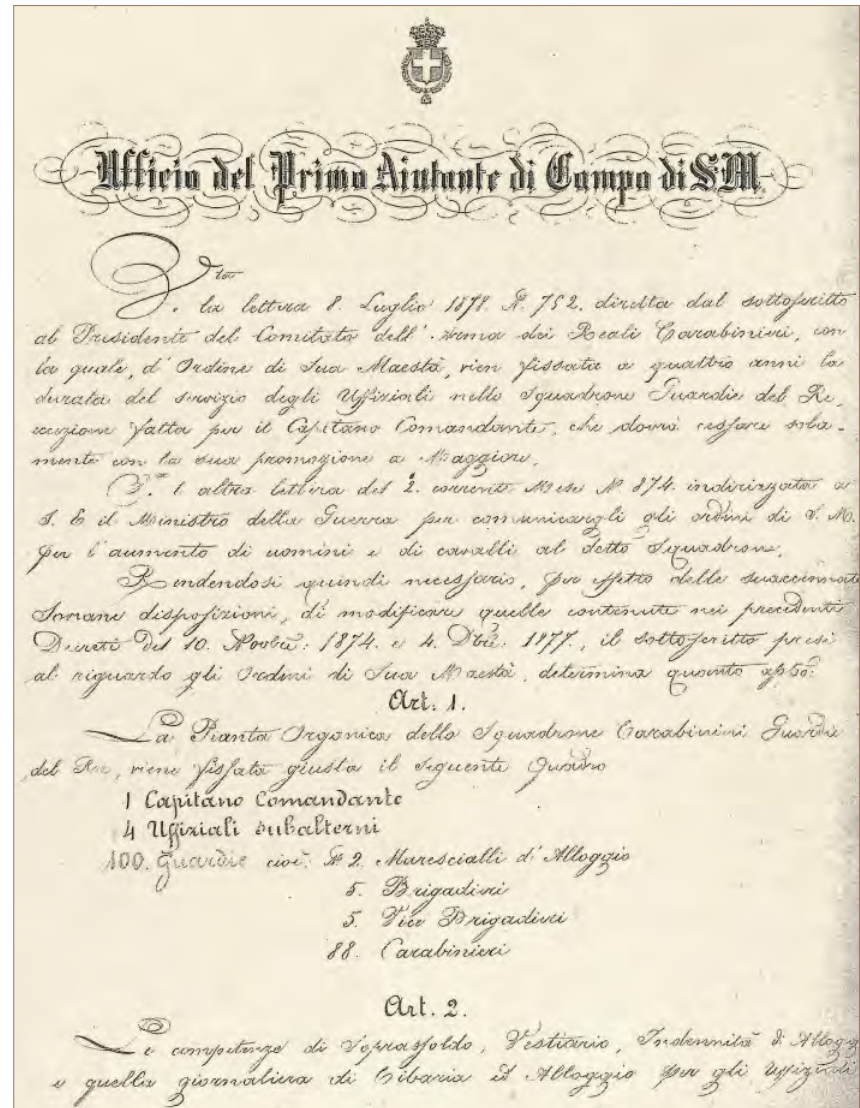 Ufficio del Primo Aiutante di Campo di S.M.
V.ta
la lettera 8. Luglio 1878. N. 752. diretta dal sottoscritto
al Presidente del Comitato dell'Arma dei Reali Carabinieri, con
la quale, d'Ordine di Sua Maestà, vien fissata a quattro anni la
durata del servizio degli Uffiziali nello Squadrone Guardie del Re,
eccezione fatta per il Capitano Comandante, che dovrà cessare sola-
mente con la sua promozione a Maggiore,
V.ta l'altra lettera del 2. corrente Mese N. 874. indirizzata a
S. E. il Ministro della Guerra per comunicargli gli ordini di S. M.
per l'aumento di uomini e di cavalli al detto Squadrone,
Rendendosi quindi necessario, per effetto delle suaccennate
Sovrane disposizioni, di modificare quelle contenute nei precedenti
Decreti del 10. Novbre: 1874. e 4. Dbre: 1877., il sottoscritto presi
al riguardo gli Ordini di Sua Maestà, determina quanto
Art. 1.
La Pianta Organica dello Squadrone Carabinieri Guardie
del Re, viene fissata giusta il seguente Quadro
1 Capitano Comandante
4 Uffiziali subalterni
100. Guardie cioè: N. 2. Marescialli d'Alloggio
5. Brigadieri
5. Vice Brigadieri
88. Carabinieri
Art. 2.
Le competenze di Soprassoldo, Vestiario, Indennità di Allogg
e quella giornaliera di Cibaria ed Alloggio per gli Uffiziali